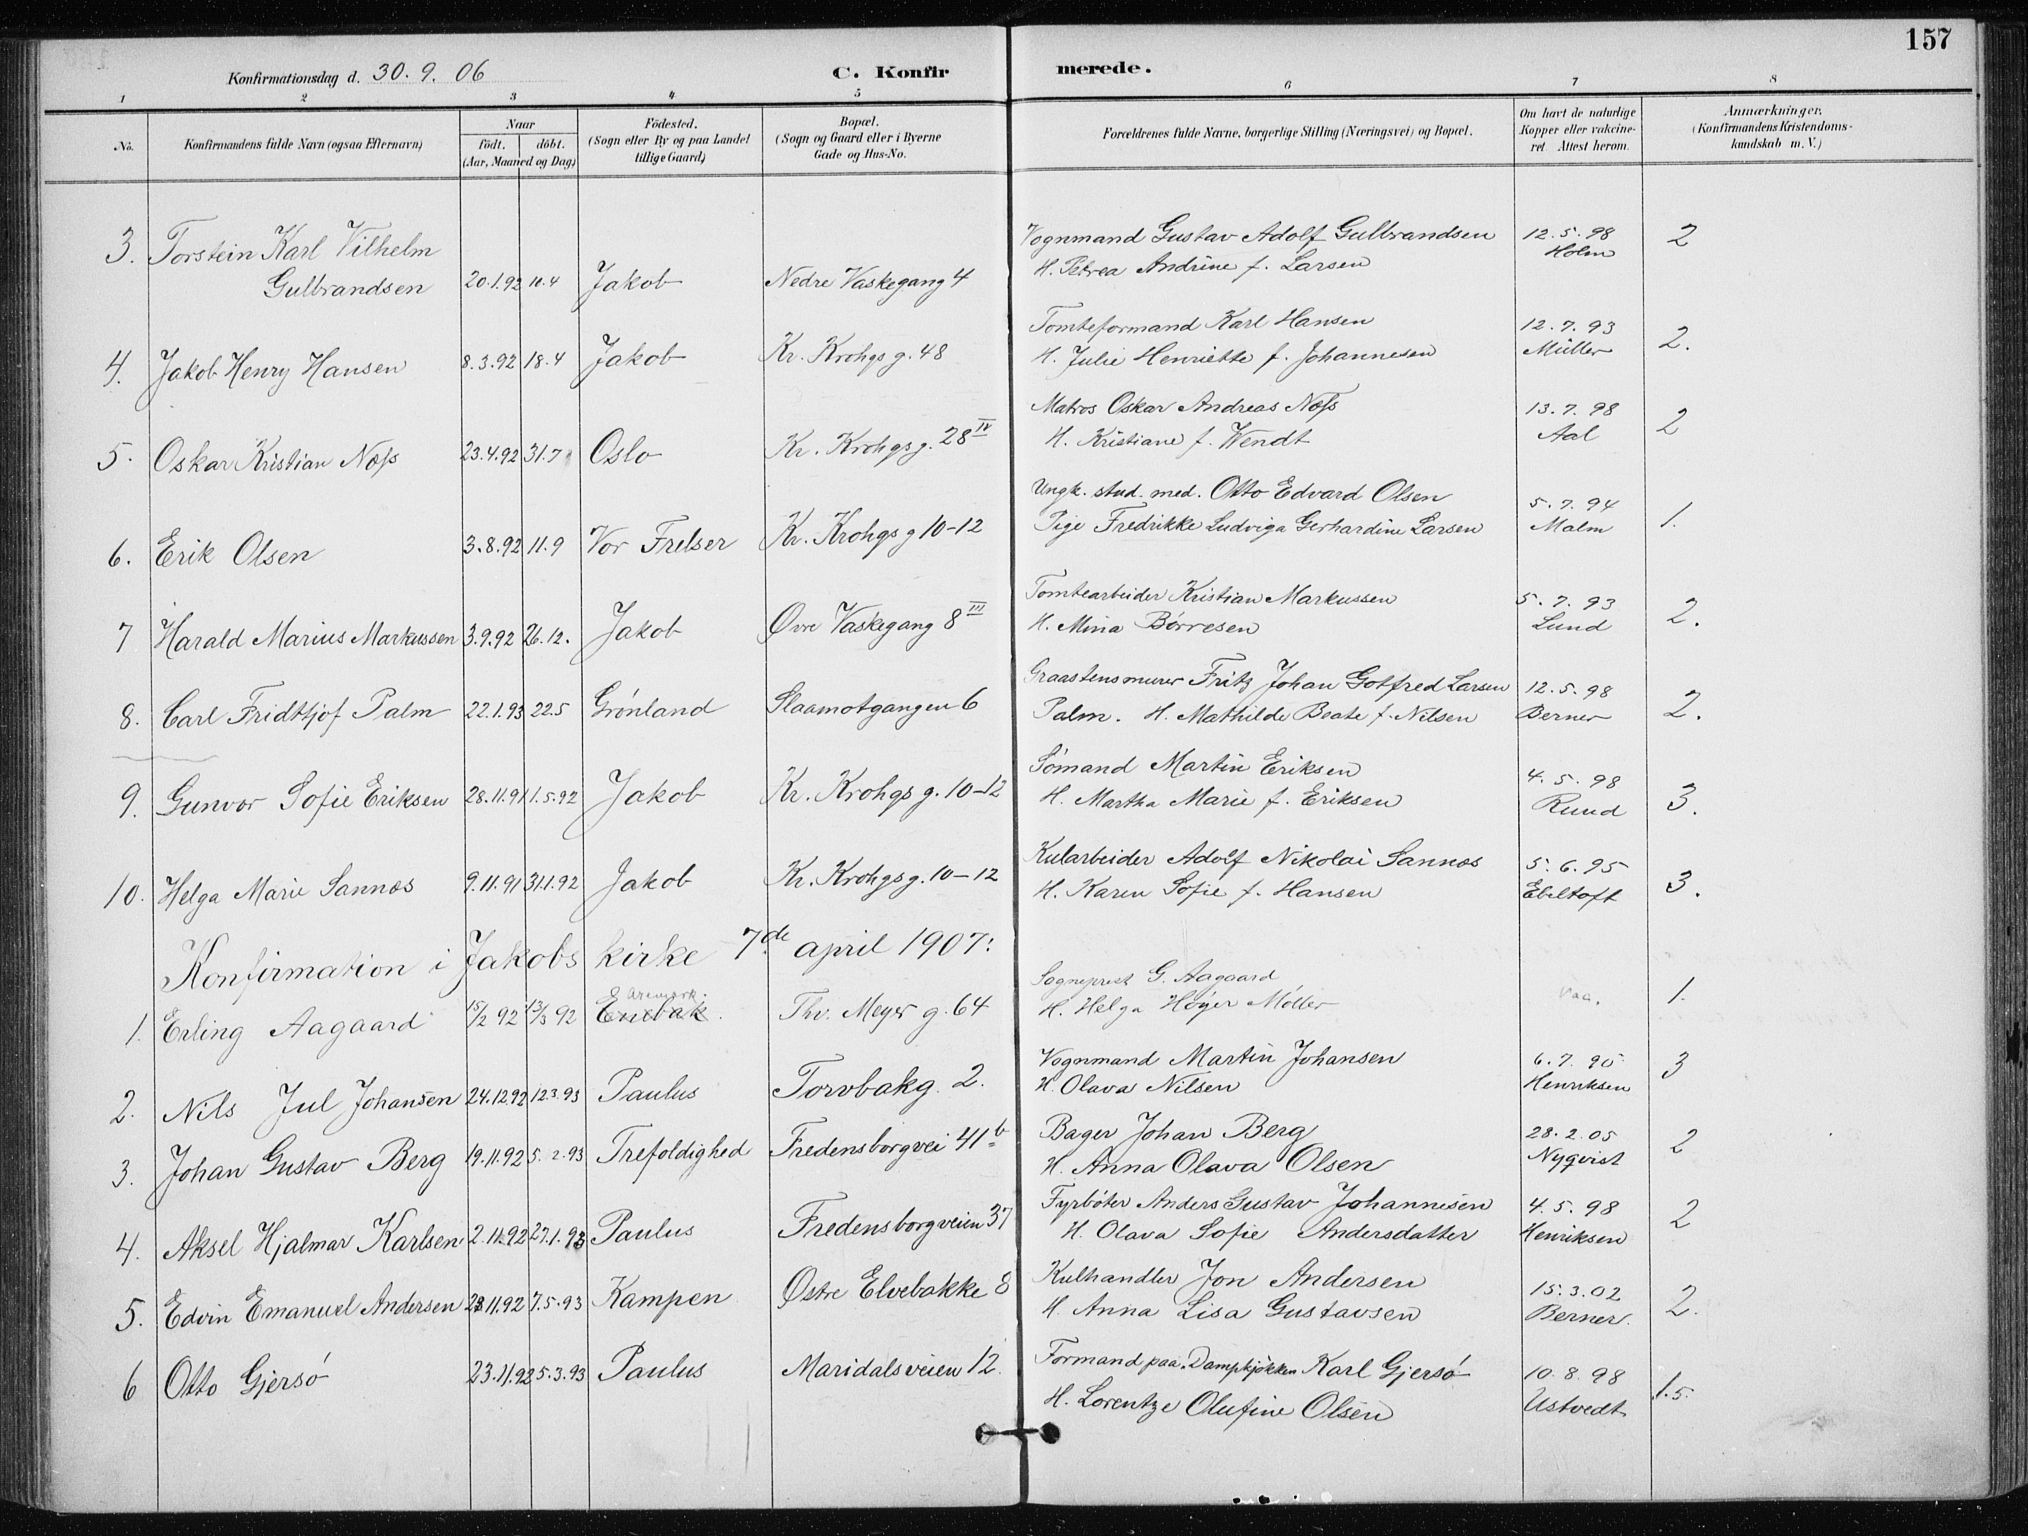 157
Konfirmationsdag d. 30. 9. 06
C. Konfirmerede.
1 2 3 4 5 6 7 8
No.
Konfirmandens fulde Navn (ogsaa Efternavn)
Naar
født. döbt.
(Aar, Maaned og Dag)
Födested.
(Sogn eller By og paa Landet
tillige Gaard)
Bopæl.
(Sogn og Gaard eller i Byerne
Gade og Hus-No.
Forældrenes fulde Navne, borgerlige Stilling (Næringsvei) og Bopæl.
Om havt de naturlige
Kopper eller vakcine-
ret. Attest herom.
Anmærkninger.
(Konfirmandens Kristendoms-
kundskab m. V.)
3. Torstein Karl Vilhelm
Gulbrandsen 20.1.92 10.4 Jakob Nedre Vaskegang 4
Vognmand Gustav Adolf Gulbrandsen 12.5.98 2
H. Petrea Andrine f. Larsen Holm
4. Jakob Henry Hansen 8.3.92 18.4 Jakob Kr. Krohgs g. 48
Tomteformand Karl Hansen 12.7.93 2.
H. Julie Henriette f. Johannesen Müller
5. Oskar Kristian Næss 23.4.92 31.7 Oslo Kr. Krohgs g. 28 IV
Matros Oskar Andreas Næss 13.7.98 2
H. Kristiane f. Wendt Aal
6. Erik Olsen 3.8.92 11.9 Vor Frelser Kr. Krohgs g 10-12
Ungk. stud. med. Otto Edvard Olsen 5.7.94 1.
Pige Fredrikke Ludviga Gerhardine Larsen Malm
7 Harald Marius Markussen 3.9.92 26.12. Jakob Øvre Vaskegang 8 III
Tomtearbeider Kristian Markussen 5.7.93 2.
H. Mina Børresen Lund
8. Carl Fridtjof Palm 22.1.93 22.5 Grønland Slaamotgangen 6
Graastensmurer Fritz Johan Gotfred Larsen 12.5.98 2.
Palm. H. Mathilde Beate f. Nilsen Berner
9. Gunvor Sofie Eriksen 28.11.91 1.5.92 Jakob Kr. Krohgs g. 10-12
Sömand Martin Eriksen 4.5.98 3.
H. Martha Marie f. Eriksen Ruud
10. Helga Marie Sannæs 9.11.91 31.1.92 Jakob Kr. Krohgs g. 10-12
Kularbeider Adolf Nikolai Sannæs 5.6.95 3.
H. Karen Sofie f. Hansen Ebeltoft
Konfirmation i Jakobs kirke 7de april 1907:
1. Erling Aagaard 15/2 92 13/3 92 Aremark. Enebak. Thv. Meyer g. 64
Sogneprest G. Aagaard 1.
H. Helga Höyer Møller
2. Nils Jul Johansen 24.12.92 12.3.93 Paulus Torvbakg. 2.
Vognmand Martin Johansen 6.7.95 3
H. Olava Nilsen Henriksen
3. Johan Gustav Berg 19.11.92 5.2.93 Trefoldighed Fredensborgvei 41 b
Bager Johan Berg 28.2.05 2
H. Anna Olava Olsen Nyqvist
4. Aksel Hjalmar Karlsen 2.11.92 27.1.93 Paulus Fredensborgveien 37
Fyrböter Anders Gustav Johannesen 4.5.98 2
H. Olava Sofie Andersdatter Henriksen
5. Edvin Emanuel Andersen 28.11.92 7.5.93 Kampen Østre Elvebakke 8
Kulhandler Jon Andersen 15.3.02 2.
H. Anna Lisa Gustavsen Berner.
6 Otto Gjersö 23.11.92 5.3.93 Paulus Maridalsveien 12.
Formand paa Dampkjökken Karl Gjersö 10.8.98 1.5.
H. Lorentze Olufine Olsen Ustvedt